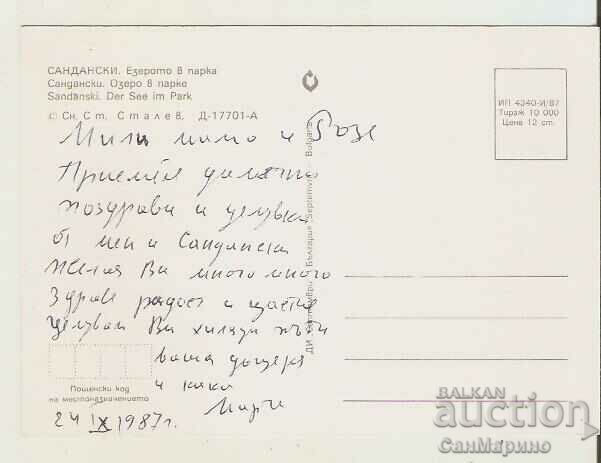 САНДАНСКИ. Езерото в парка
Сандански. Озеро в парке
Sandanski. Der See im Park
с Сн. Ст. Сталев. Д-17701-А
ИП 4340-И/87
Тираж 10 000
Цена 12 ст.
Мили мамо и Розе
Приемете
поздрави и целувки
от мен и Сандански
Желая Ви много много
Здраве радост и щастие
Целувам Ви хиляди пъти
ваша дъщеря
и кака
24 IX 1987г.
Пощенски код
на местоназначението
ДИ „Септември“ България Septemvri Bulgaria
BALKAN
auction
СанМарино